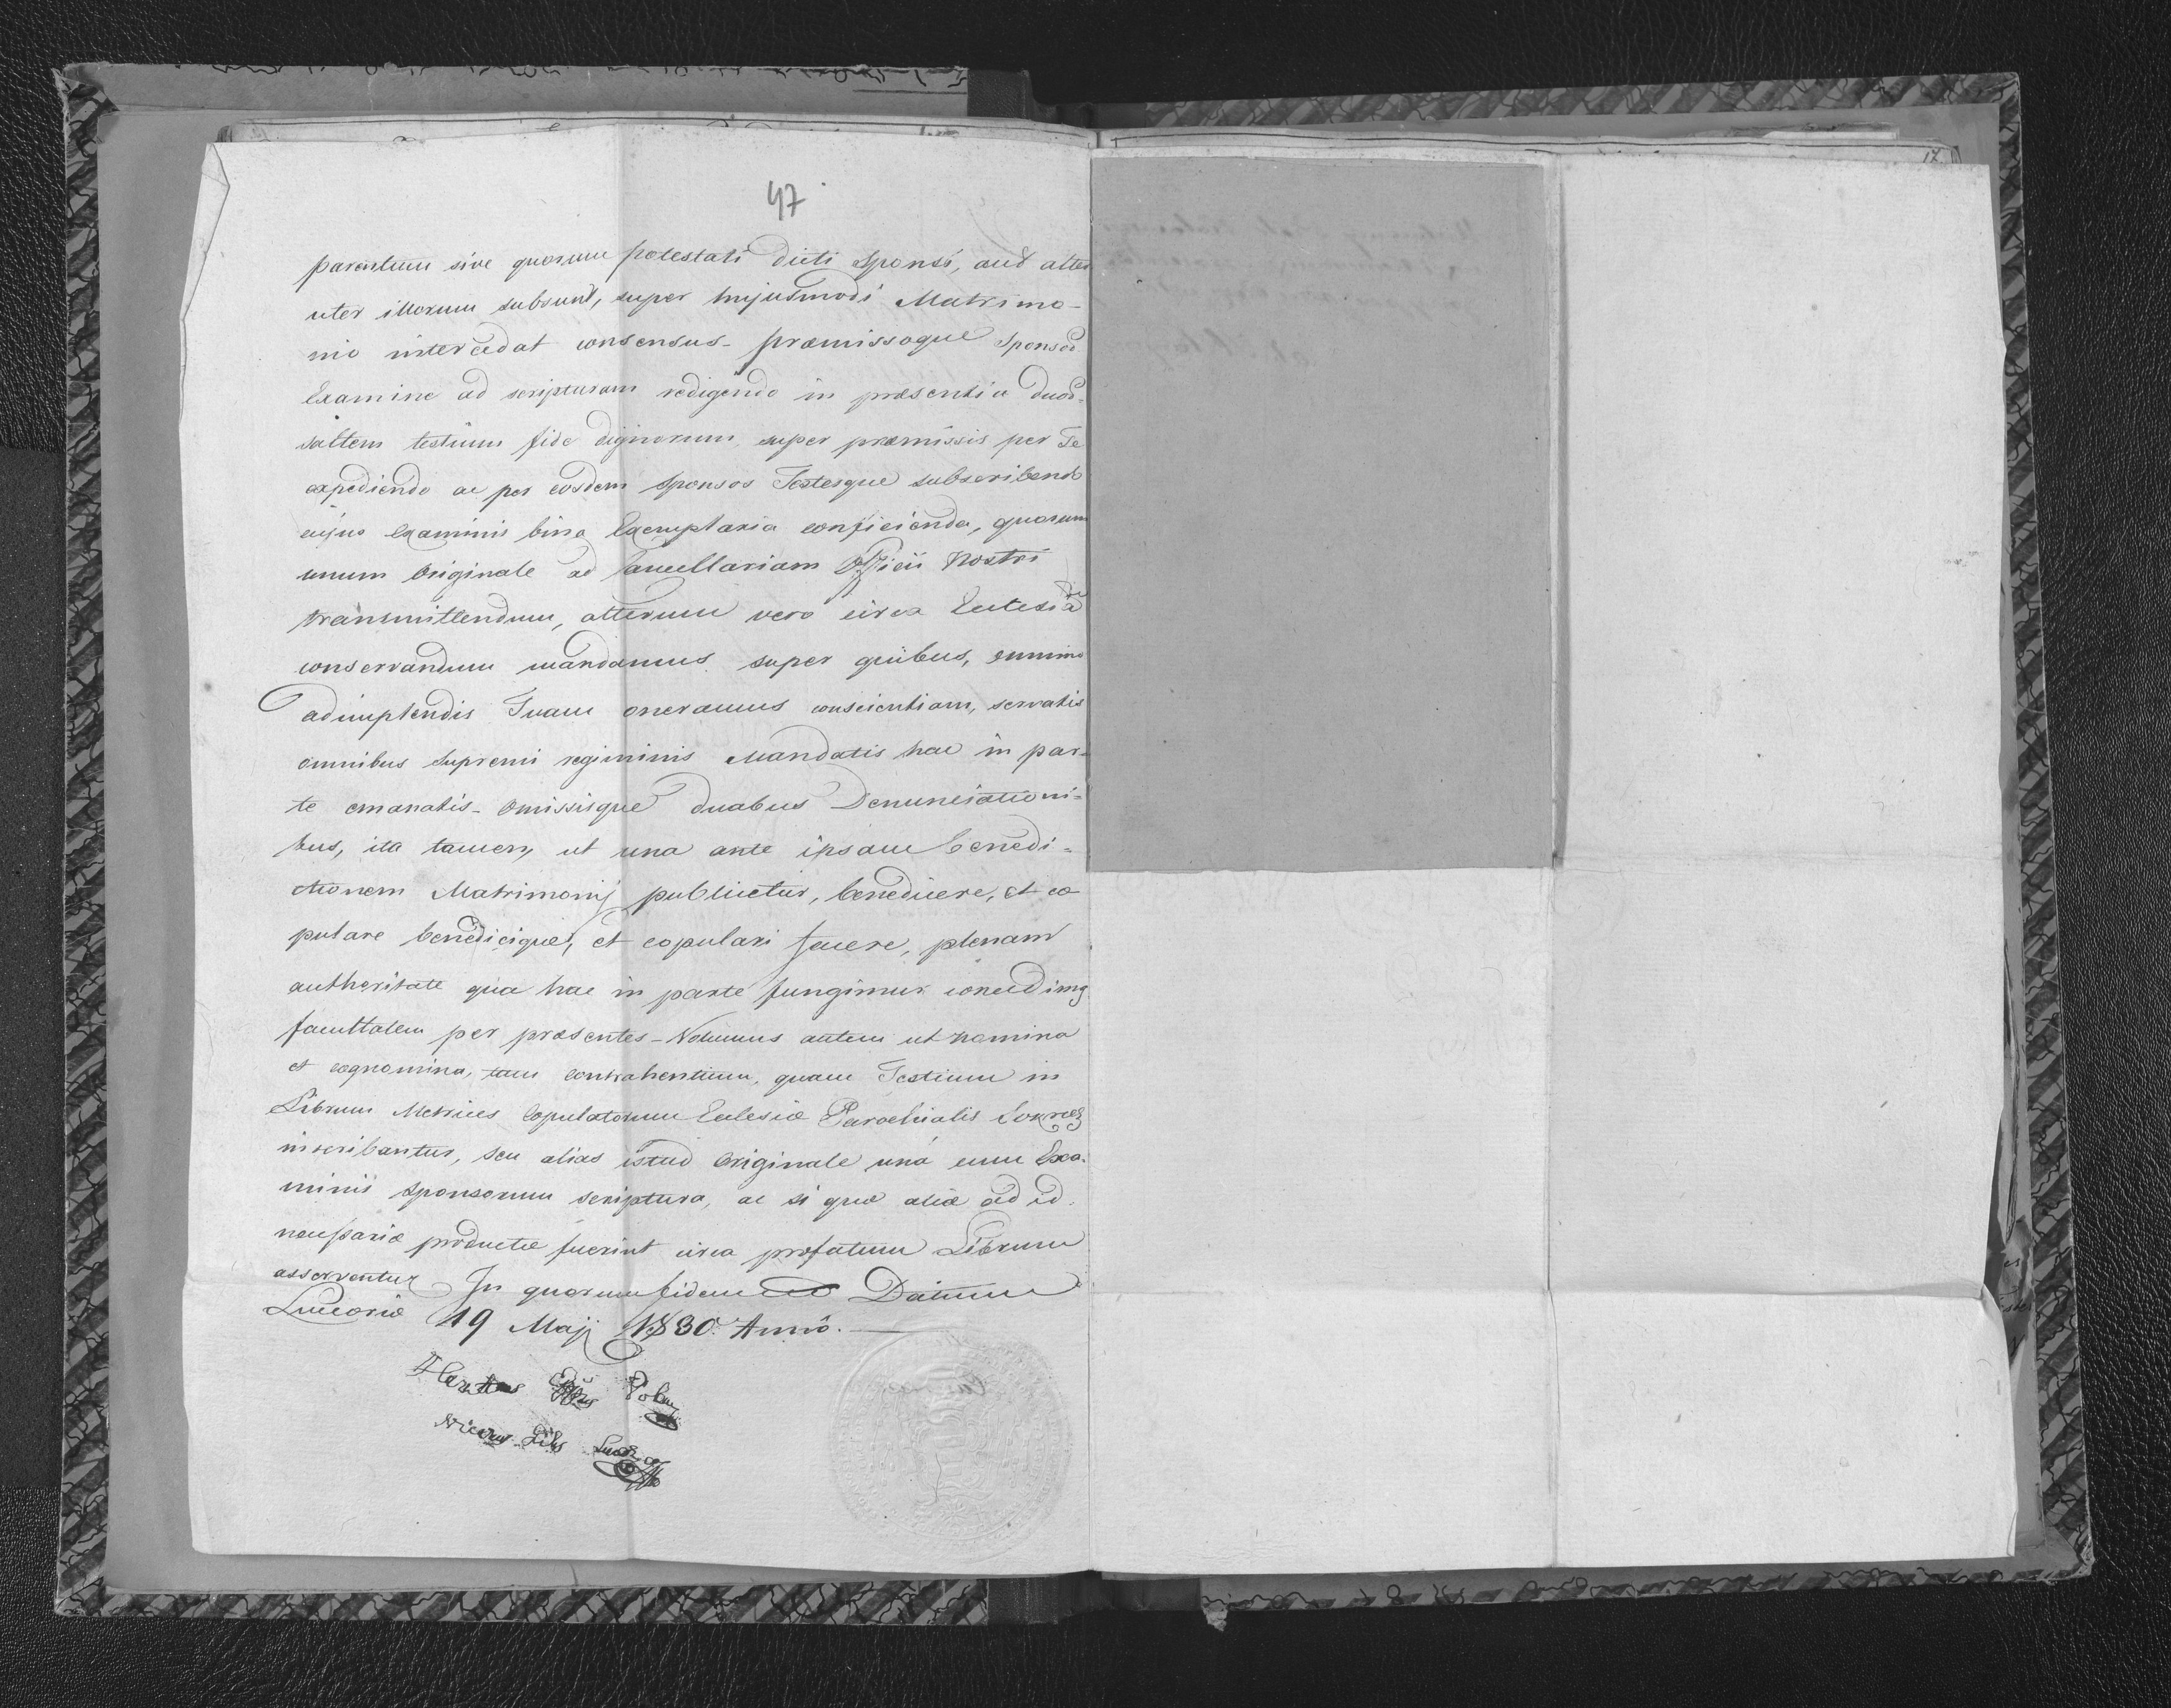 47
parentum sive quorum potestati dicti Sponsi, aut alter
uter illorum subsunt, super hujusmodi Matrimo-
nio intercedat consensus - præmissoque Sponsor.
Examine ad scripturam redigendo in præsentia duor.
saltem testium fide dignorum, super præmissis per Te
expediendo ac per eosdem Sponsos Testesque subscribendo
cujus Examinis bina Exemplaria conficienda, quorum
unum Originale ad Cancellariam Officii Nostri
transmittendum, alterum vero circa Eclesia
conservandum mandamus super quibus, omnino
adimplendis Tuam oneramus conscientiam, servatis
omnibus Supremi regiminis Mandatis hac in par-
te emanatis - Omissisque duabus Denunciationi=
bus, ita tamen, ut una ante ipsam benedi=
ctionem Matrimonij publicetur, benedicere, et co
pulare benedicique, et copulari facere, plenam
authoritate qua hac in parte fungimur concedimg
facultatem per præsentes - Volumus autem ut nomina
et cognomina, tam contrahentium, quam Testium in
Librum Metrices Copulatorum Eclesiæ Parochialis
inscribantur, seu alias istud Originale una cum Exa-
minis Sponsorum scriptura, ac si quæ aliæ ad id
necessariæ productæ fuerint circa præfatum Librum
asserventur In quorum fidem Datum
Luceoriæ 19 Maji 1830 Anno.
17